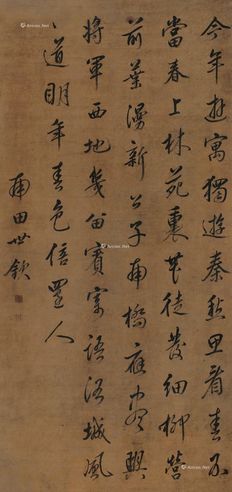 今年遊寓獨遊秦愁思看春不
當春上林苑裏花徒發細柳營
前葉漫新公子南橋應尽興
將軍西地幾留賓寄語洛城風
日道明年春色信還人
田世